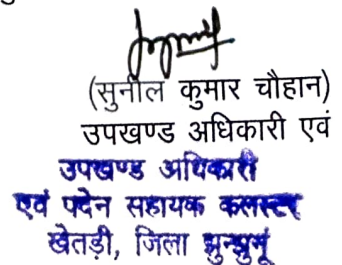 (सुनील कुमार चौहान)
उपखण्ड अधिकारी एवं
उपखण्ड अधिकारी
एवं पदेन सहायक कलक्टर
खेतड़ी, जिला झुन्झुनूं